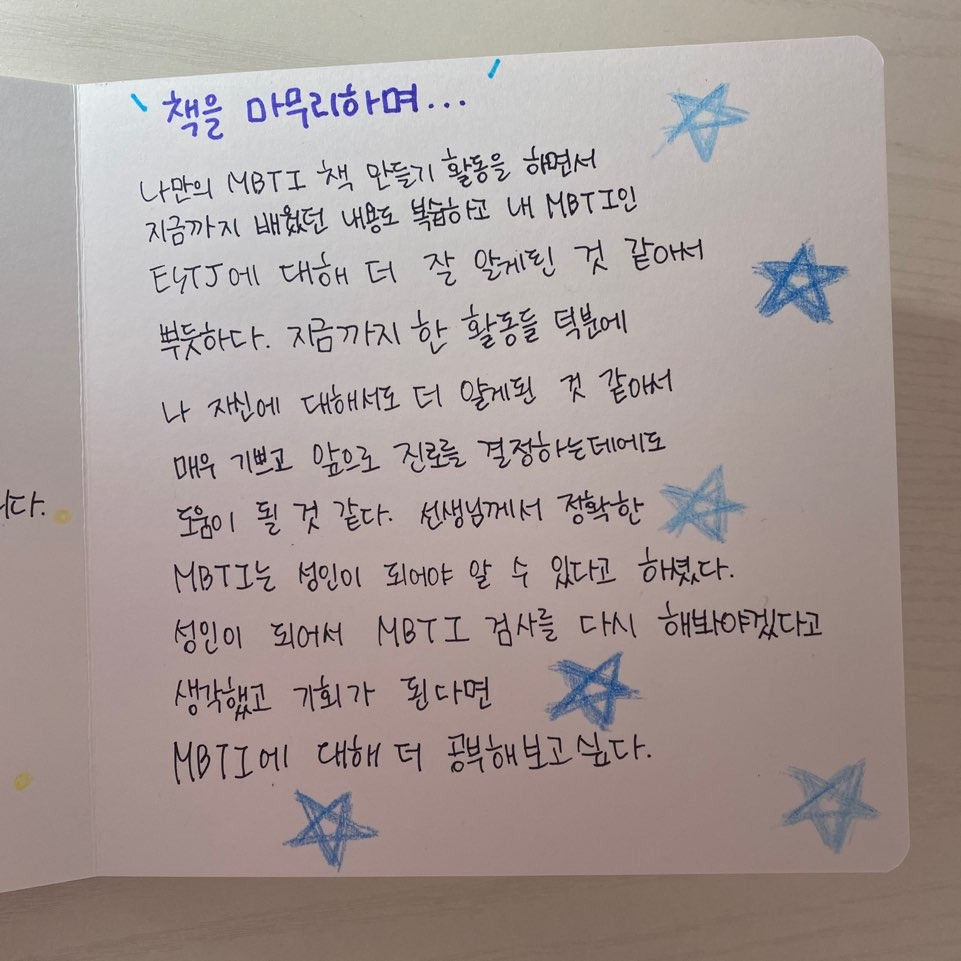 책을 마무리하며...
나만의 MBTI 책 만들기 활동을 하면서
지금까지 배웠던 내용도 복습하고 내 MBTI인
ESTJ에 대해 더 잘 알게된 것 같아서
뿌듯하다. 지금까지 한 활동들 덕분에
나 자신에 대해서도 더 알게된 것 같아서
매우 기쁘고 앞으로 진로를 결정하는데에도
도움이 될 것 같다. 선생님께서 정확한
MBTI는 성인이 되어야 알 수 있다고 하셨다.
성인이 되어서 MBTI 검사를 다시 해봐야겠다고
생각했고 기회가 된다면
MBTI에 대해 더 공부해보고싶다.